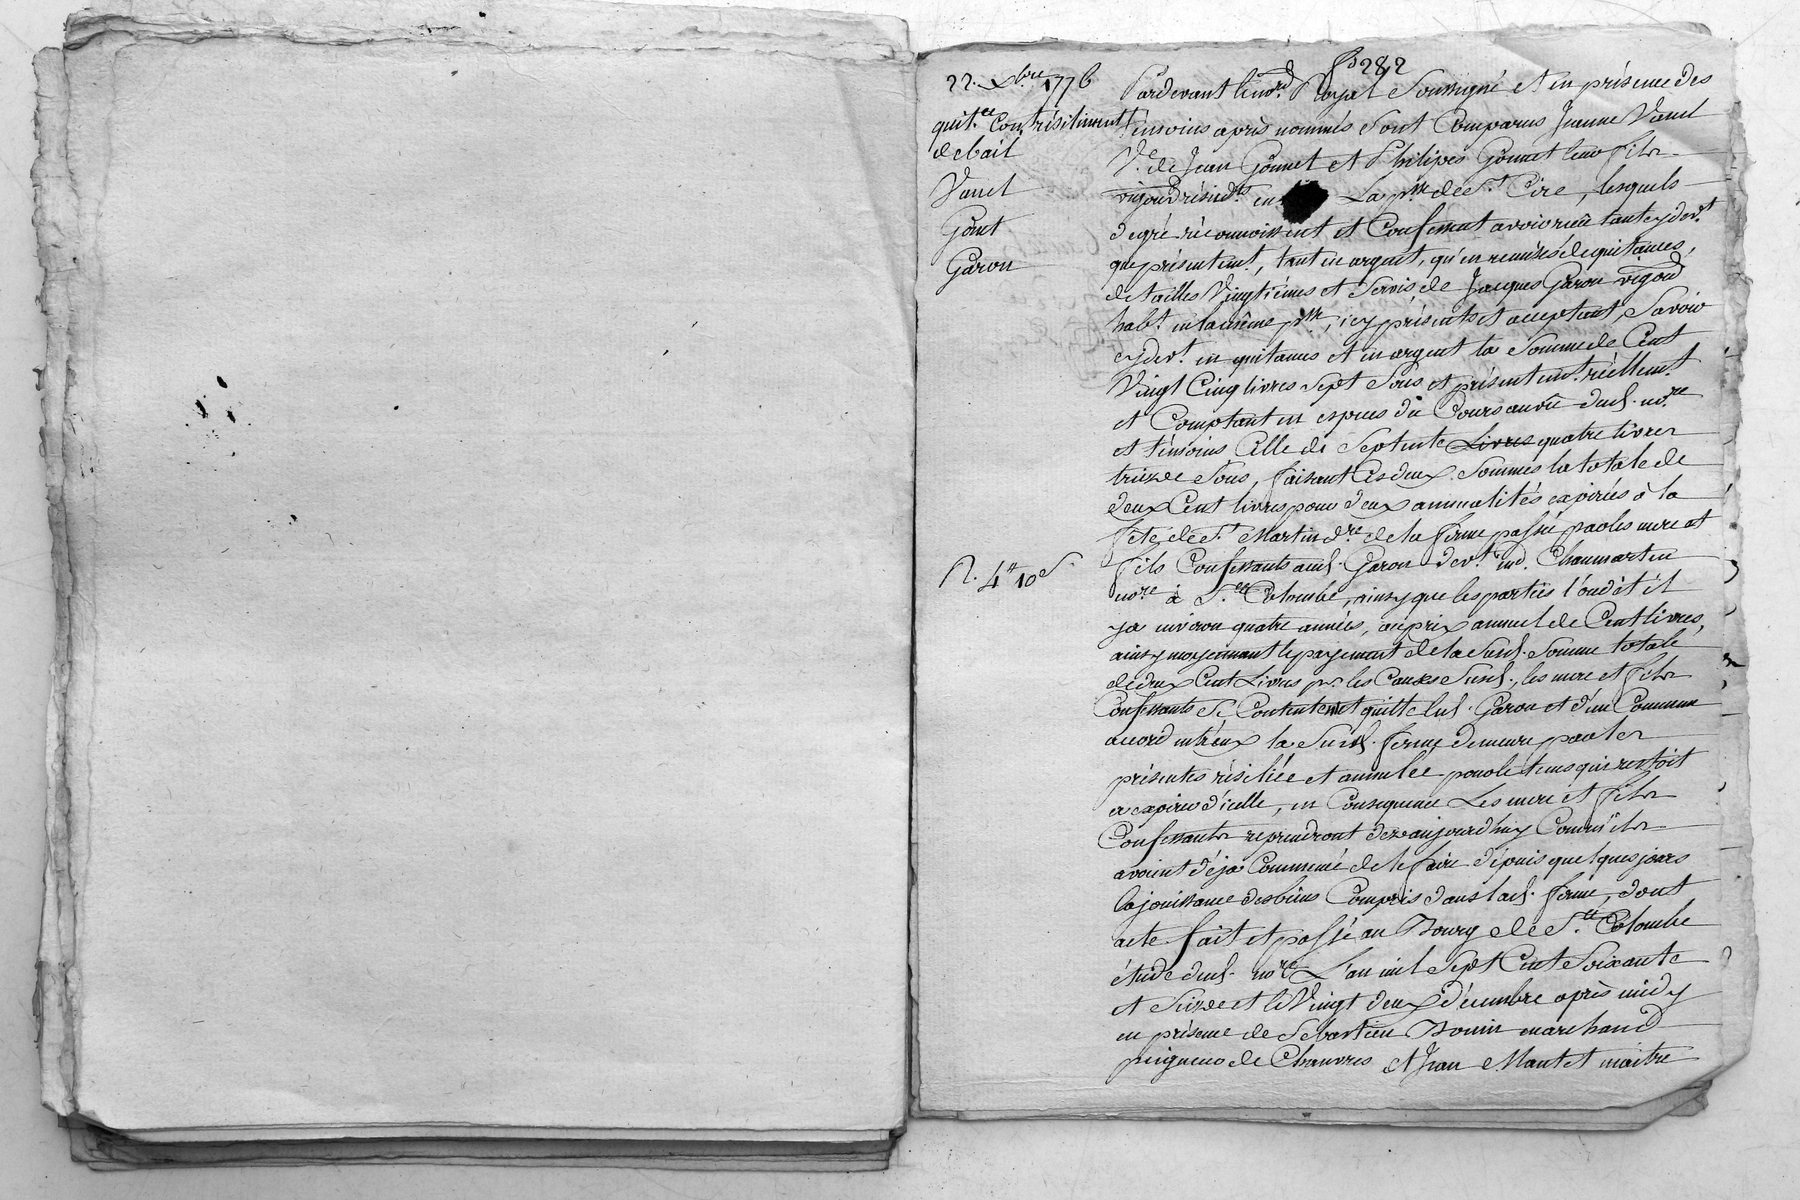 fo 282
22. Xbre 1776
quit.ce Con. résiliment
de bail
Vanel
Gônet
Garon
R. 4# 10s
Pardevant le no.re Royal Soussigné et en présence des
témoins après nommés sont Comparus Jeanne Vanel
V.e de Jean Gônnet et Philipes Gônnet leur fils
vigod résid.ts en La p.sse de S.t Cire, lesquels
de gré réconnoissent et Confessent avoir reçû tant cy dev.t
que présentemt., tant en argent, qu'en remises de quitances,
de tailles Vingtiémes et Servis, de Jacques Garon vigod
hab.t en la même p.sse, icy présents et acceptant, Savoir
cy dev.t en quitances et en argent la Somme de Cent
Vingt Cinq livres Sept Sous et présentemt. réellemt.
et Comptant en espèces du Cours au vû dud. no.re
et témoins Celle de Septente Livres quatre livres
treize Sous, faisant Ces deux Sommes la totale de
deux Cent livres pour deux annualités expirées à la
fête de S.t Martin d.re de la ferme passée par les mere et
fils Confessants aud. Garon dev.t md. Chaumartin
no.re à S.te Colombe, ainsy que les parties l'ond dit il
ya environ quatre années, au prix annuel de Cent livres,
ainsy moyennant le payement de la Susd. Somme totale
de deux Cent Livres pr. les Causes Susd., les mere et fils
Confessants Se Contentent et quitte led. Garon et d'un Commun
accord entr'eux la Susd. ferme demeure par les
présentes résiliée et annulée pour le tems qui restoit
a expirer d'icelle, en Conséquence Les mere et fils
Confessants reprendront dez aujourd'huy Comm'ils
avoient déja Commencé de le faire dépuis quelques jours
la jouissance des biens Compris dans lad. ferme, dont
acte fait et passé au Bourg de S.te Colombe
étude dud. no.re L'an mil Sept Cent Soixante
et Seize et le Vingt deux décembre après midy
en présence de Sébastien Bonin marchand
peigneur de Chanvres et Jean Mantet maitre